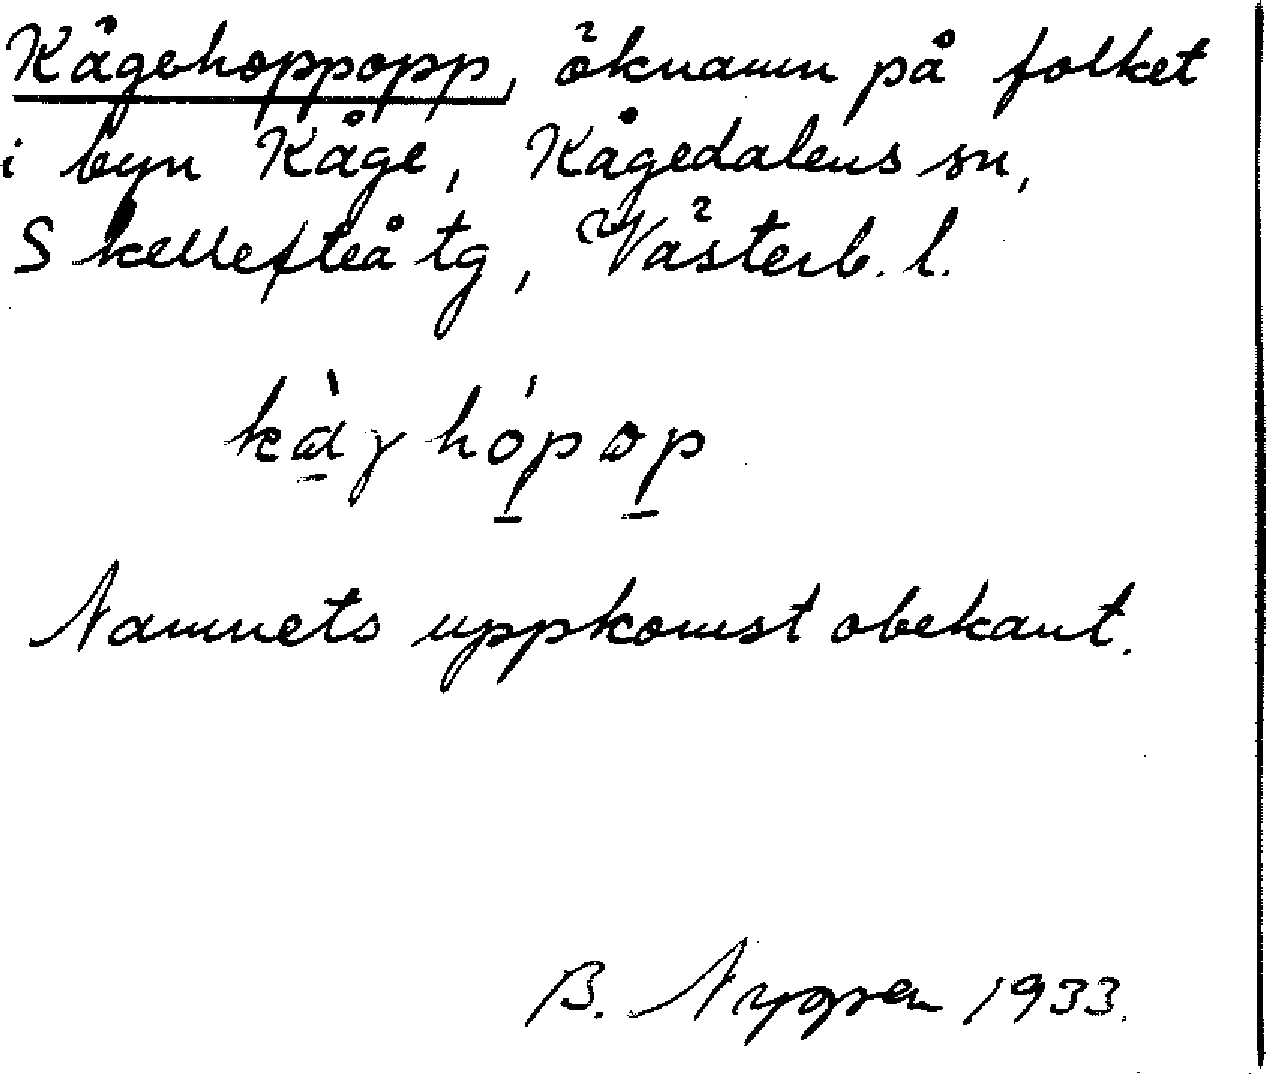 Kågehoppopp, öknamn på folket
i byn Kåge, Kågedalens sn,
Skellefteå tg, Västerb. l.
kàɣhópop
Namnets uppkomst obekant.
B. Nygren 1933.